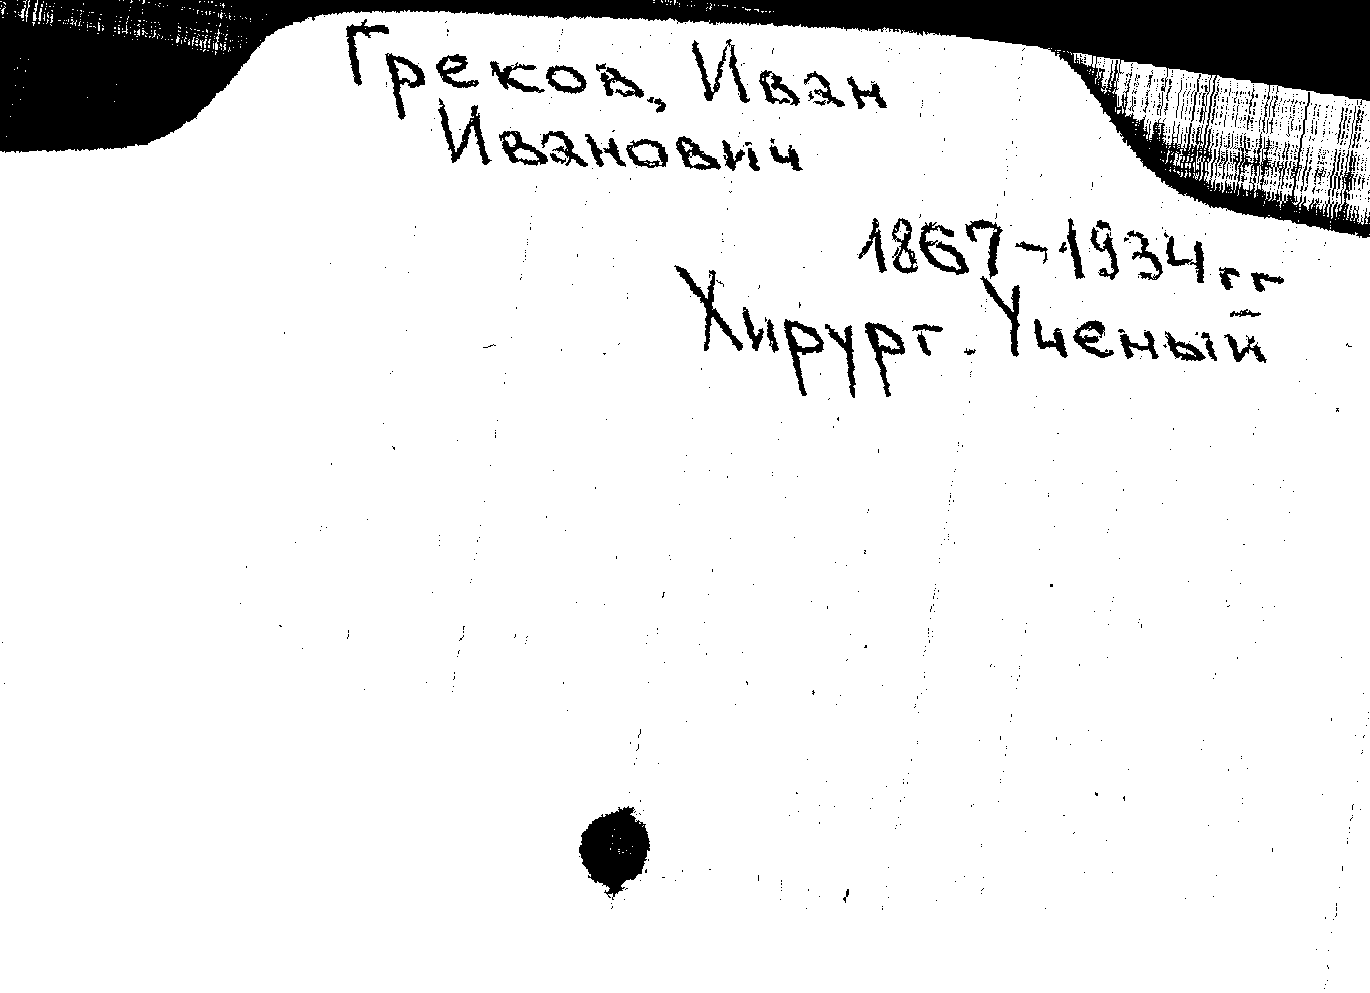 Греков, Иван
Иванович
1867-1934 гг
Хирург. Ученый